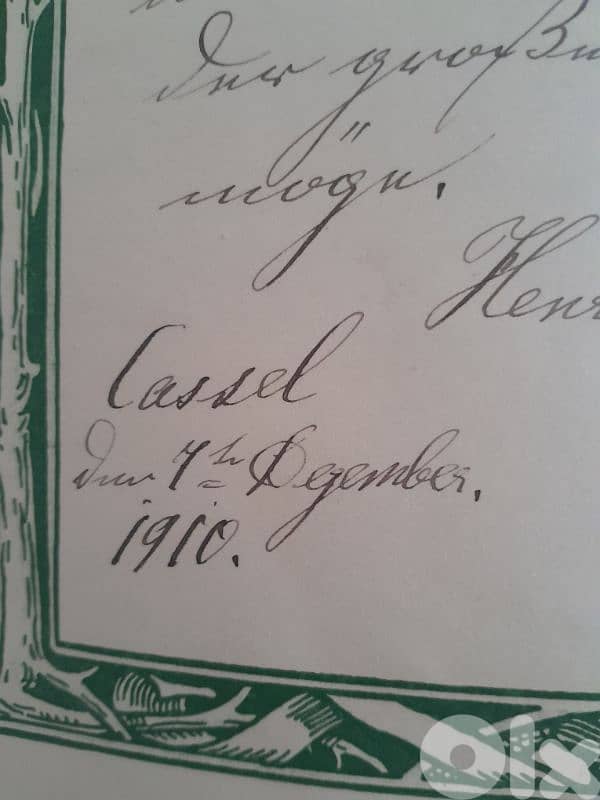 der große
möge.
Henr
Cassel
den 7ten Dezember.
1910.
OLX